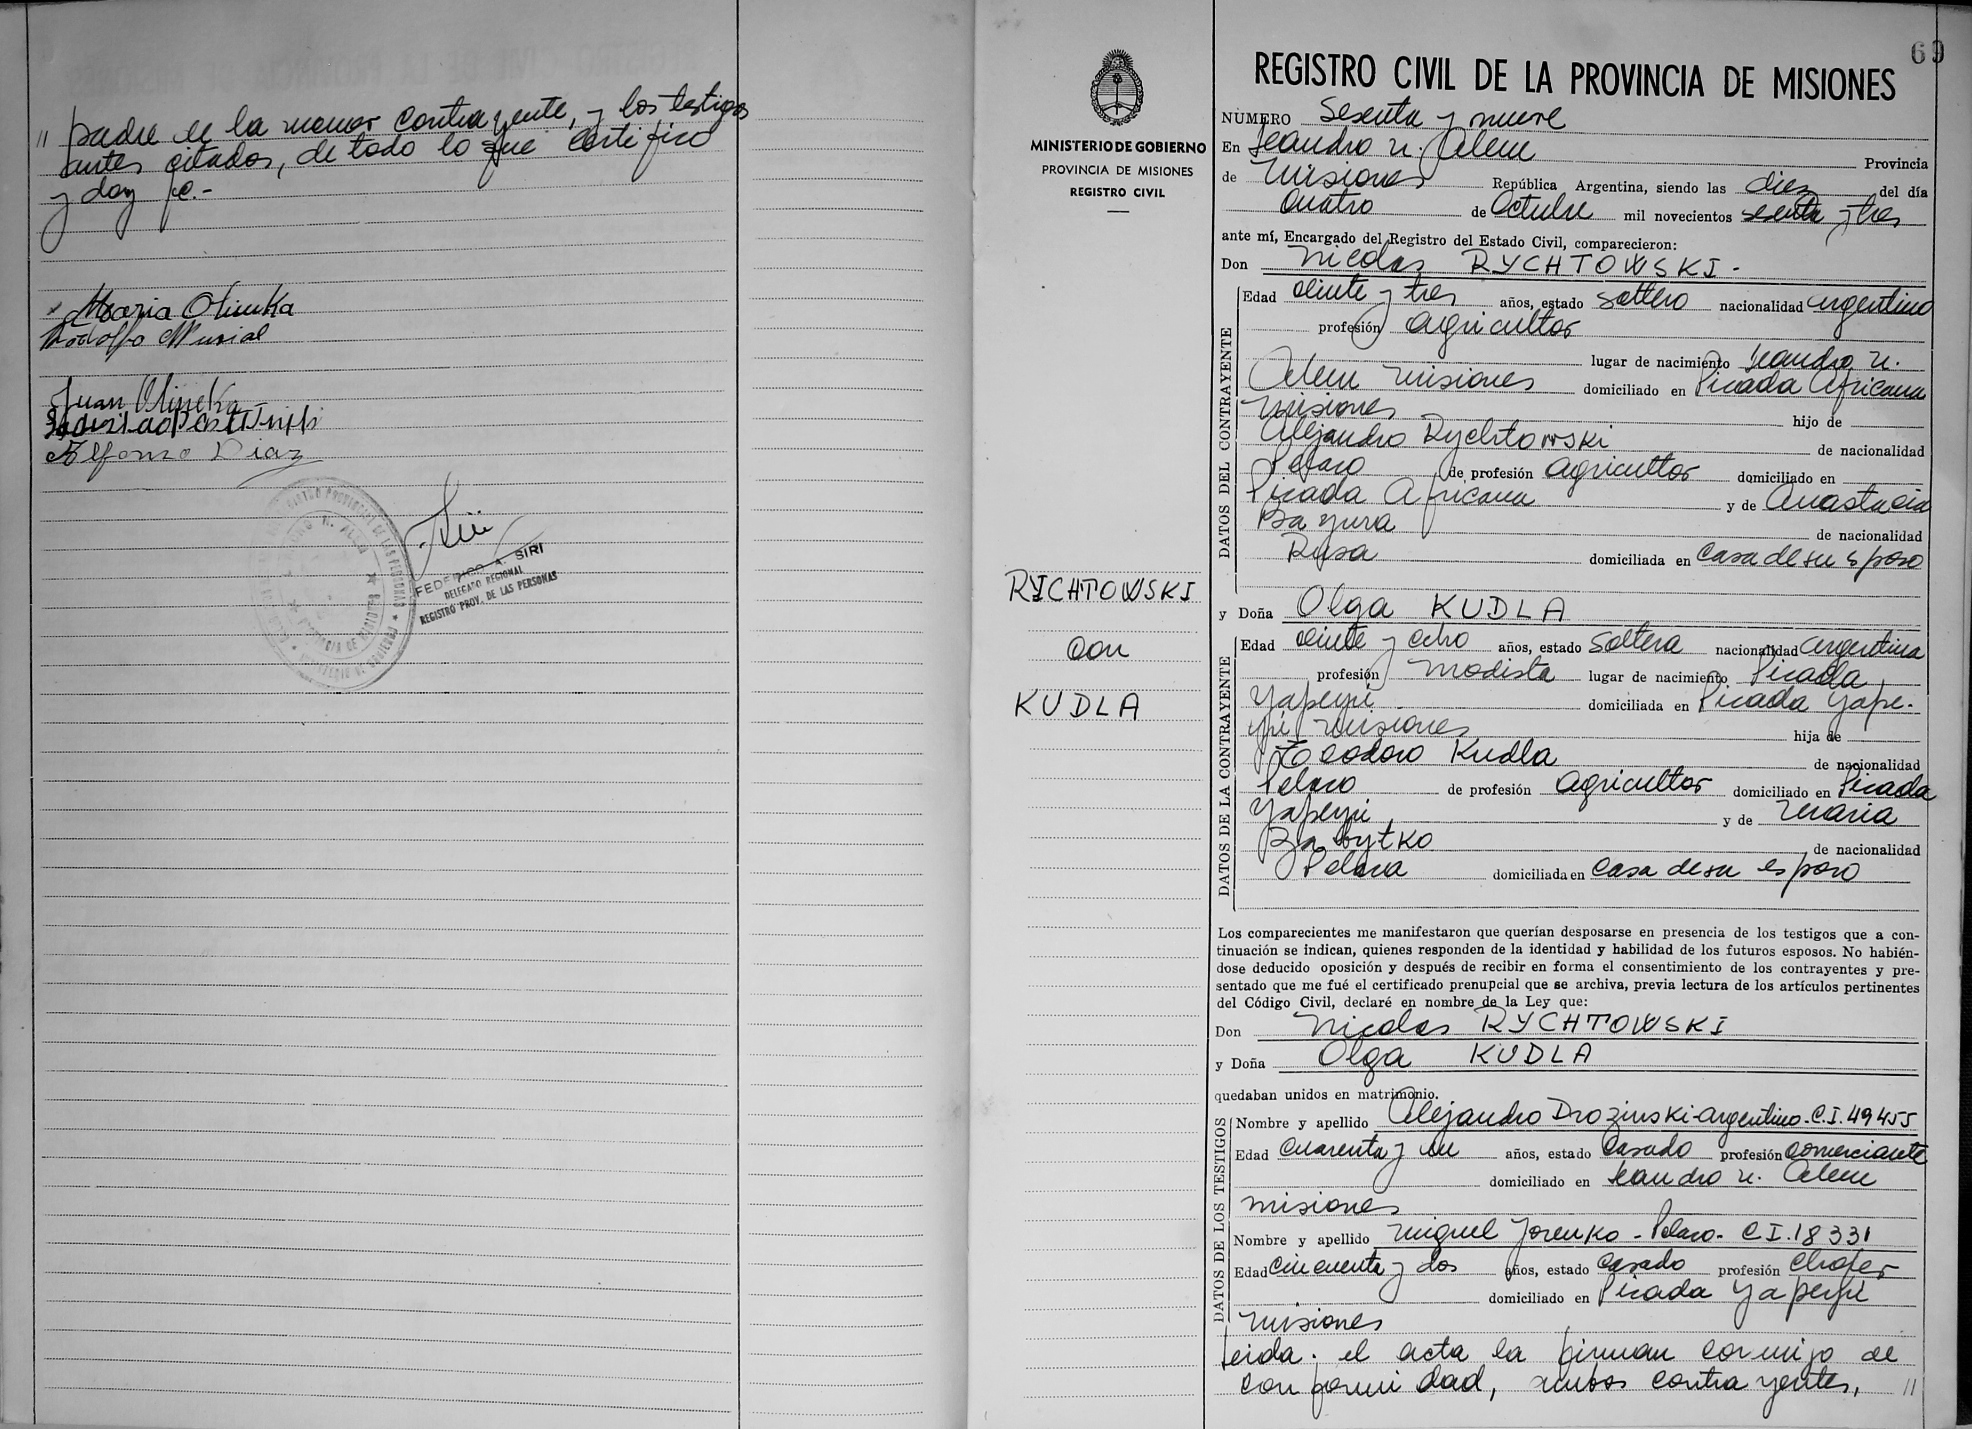 " padre de la menor contrayente, y los testigos
antes citados, de todo lo que certifico
y doy fe.-
Maria Olinuka
Rodolfo Musial
Juan Olineka
Alfonso Diaz
FEDERICO A. SIRI
DELEGADO REGIONAL
REGISTRO PROV. DE LAS PERSONAS
MINISTERIO DE GOBIERNO
PROVINCIA DE MISIONES
REGISTRO CIVIL
RYCHTOWSKI
con
KUDLA
69
REGISTRO CIVIL DE LA PROVINCIA DE MISIONES
NUMERO Sesenta y nueve
En Leandro N. Alem Provincia
de Misiones República Argentina, siendo las diez del día
cuatro de Octubre mil novecientos sesenta y tres
ante mí, Encargado del Registro del Estado Civil, comparecieron:
Don Nicolas RYCHTOWSKI.-
DATOS DEL CONTRAYENTE
Edad veinte y tres años, estado soltero nacionalidad argentino
profesión agricultor
lugar de nacimiento Leandro N.
Alem Misiones domiciliado en Picada Africana
Misiones hijo de
Alejandro Rychtowski de nacionalidad
Polaco de profesión agricultor domiciliado en
Picada Africana y de Anastacia
Bayura de nacionalidad
Rusa domiciliada en casa de su esposo
y Doña Olga KUDLA
DATOS DE LA CONTRAYENTE
Edad veinte y ocho años, estado soltera nacionalidad argentina
profesión modista lugar de nacimiento Picada
Yapeyú domiciliada en Picada Yape-
yú Misiones hija de
Teodoro Kudla de nacionalidad
Polaco de profesión agricultor domiciliado en Picada
Yapeyú y de Maria
Babytko de nacionalidad
Polaca domiciliada en casa de su esposo
Los comparecientes me manifestaron que querían desposarse en presencia de los testigos que a con-
tinuación se indican, quienes responden de la identidad y habilidad de los futuros esposos. No habién-
dose deducido oposición y después de recibir en forma el consentimiento de los contrayentes y pre-
sentado que me fué el certificado prenupcial que se archiva, previa lectura de los artículos pertinentes
del Código Civil, declaré en nombre de la Ley que:
Don Nicolas RYCHTOWSKI
y Doña Olga KUDLA
quedaban unidos en matrimonio.
DATOS DE LOS TESTIGOS
Nombre y apellido Alejandro Drozinski-argentino-C.I.49455
Edad cuarenta y un años, estado casado profesión comerciante
domiciliado en Leandro N. Alem
Misiones
Nombre y apellido Miguel Jorenko - Polaco- C I.18331
Edad cincuenta y dos años, estado casado profesión chofer
domiciliado en Picada Yapeyú
Misiones
Leida. el acta la firman conmigo de
conformidad, ambos contrayentes, "